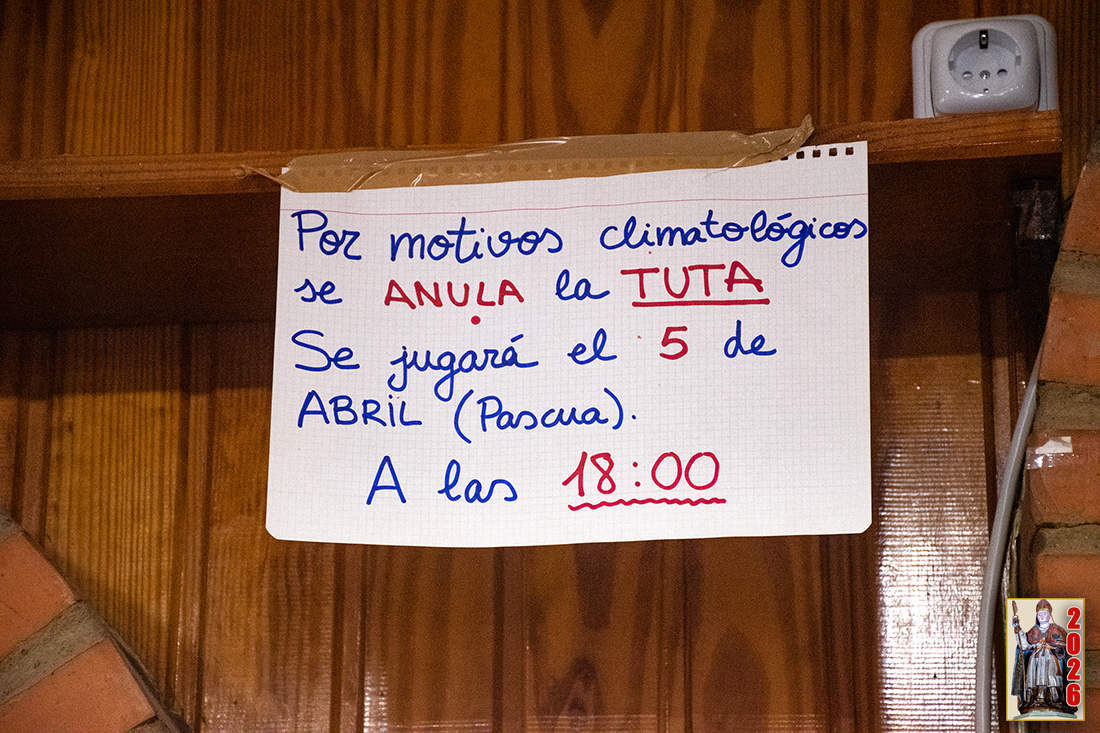 Por motivos climatológicos
se ANULA la TUTA
Se jugará el 5 de
ABRIL (Pascua).
A las 18:00
2026